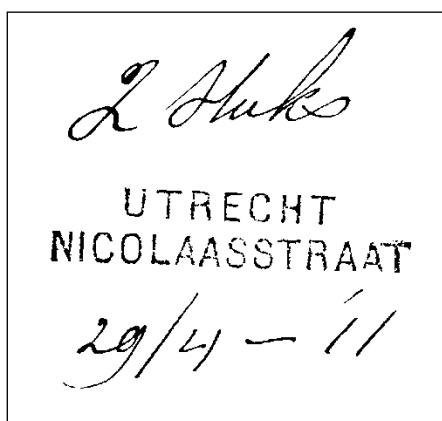 2 stuks
UTRECHT
NICOLAASSTRAAT
29/4 - '11